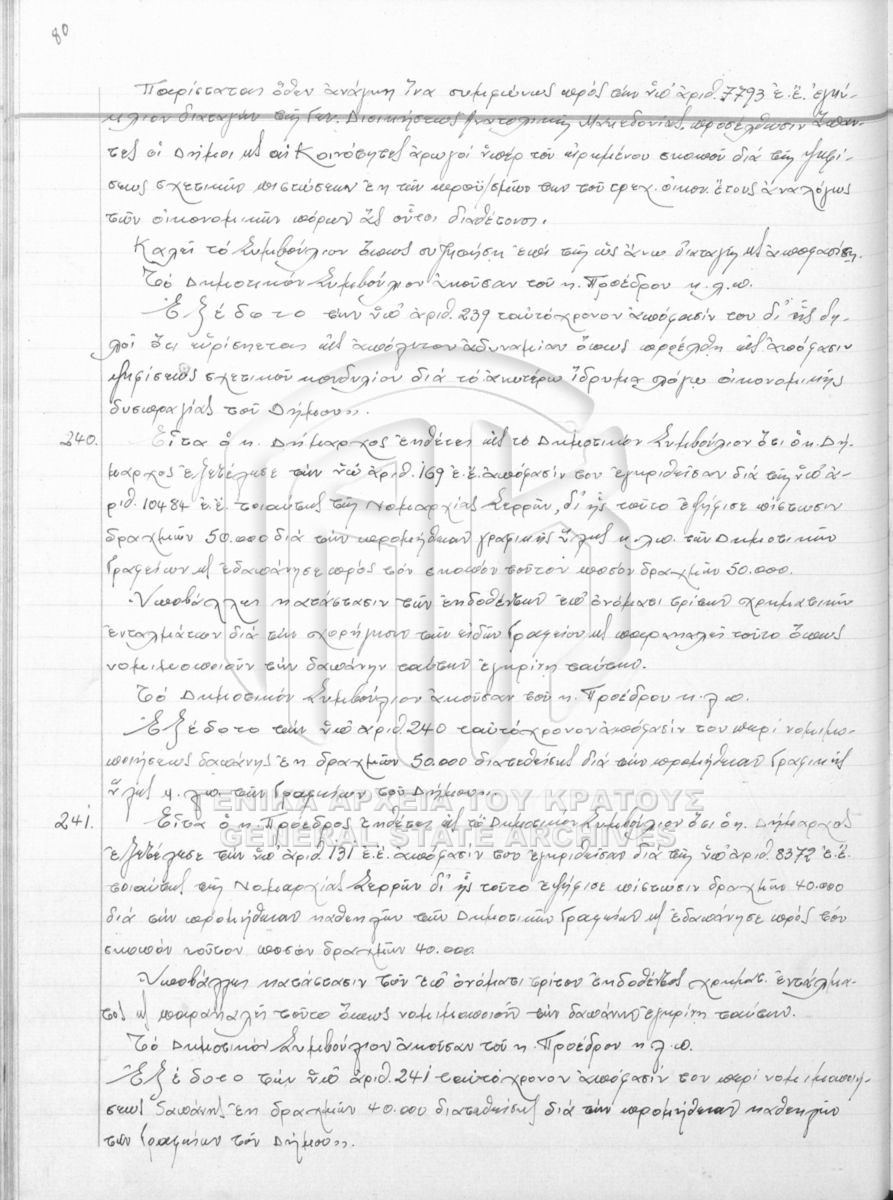 80
Παρίσταται ὅθεν ἀνάγκη ἵνα συμφώνως πρός τήν ὑπ' ἀριθ. 7793 ἐ.ἔ. ἐγκύ-
κλιον διαταγήν τῆς Γεν. Διοικήσεως Ἀνατολικῆς Μακεδονίας, προσέλθωσιν ἅπαν-
τες οἱ Δῆμοι καί αἱ Κοινότητες ἀρωγοί ὑπέρ τοῦ εἰρημένου σκοποῦ διά τῆς ψηφί-
σεως σχετικῶν πιστώσεων ἐκ τῶν προϋ/σμῶν των τοῦ τρεχ. οἰκον. ἔτους ἀναλόγως
τῶν οἰκονομικῶν πόρων οὗτοι διαθέτουσι.
Καλεῖ τό Συμβούλιον ὅπως συζητήσῃ ἐπί τῆς ὡς ἄνω διαταγῆς καί ἀποφασίσῃ.
Τό Δημοτικόν Συμβούλιον ἀκοῦσαν τοῦ κ. Προέδρου κ.λ.π.
Ἐξέδοτο τήν ὑπ' ἀριθ. 239 ταὐτόχρονον ἀπόφασίν του δι' ἧς δη-
λοῖ ὅτι εὑρίσκεται εἰς ἀπόλυτον ἀδυναμίαν ὅπως προέλθῃ εἰς ἀπόφασιν
ψηφίσεως σχετικοῦ κονδυλίου διά τό ἀνωτέρω ἵδρυμα λόγῳ οἰκονομικῆς
δυσπραγίας τοῦ Δήμου».
240. Εἶτα ὁ κ. Δήμαρχος ἐκθέτει εἰς τό Δημοτικόν Συμβούλιον ὅτι ὁ κ. Δή-
μαρχος ἐξετέλεσε τήν ὑπ' ἀριθ. 169 ἐ.ἔ. ἀπόφασίν του ἐγκριθεῖσαν διά τῆς ὑπ' ἀ-
ριθ. 10484 ἐ.ἔ. τοιαύτης τῆς Νομαρχίας Σερρῶν, δι' ἧς τοῦτο ἐψήφισε πίστωσιν
δραχμῶν 50.000 διά τήν προμήθειαν γραφικῆς ὕλης κ.λ.π. τῶν Δημοτικῶν
Γραφείων καί ἐδαπάνησε πρός τόν σκοπόν τοῦτον ποσόν δραχμῶν 50.000.
Ὑποβάλλει κατάστασιν τῶν ἐκδοθέντων ἐπ' ὀνόματι τρίτων χρηματικῶν
ἐνταλμάτων διά τήν χορήγησιν τῶν εἰδῶν Γραφείου καί παρακαλεῖ τοῦτο ὅπως
νομιμοποιοῦν τήν δαπάνην ταύτην ἐγκρίνῃ ταύτην.
Τό Δημοτικόν Συμβούλιον ἀκοῦσαν τοῦ κ. Προέδρου κ.λ.π.
Ἐξέδοτο τήν ὑπ' ἀριθ. 240 ταὐτόχρονον ἀπόφασίν του περί νομιμο-
ποιήσεως δαπάνης ἐκ δραχμῶν 50.000 διατεθείσης διά τήν προμήθειαν Γραφικῆς
ὕλης κ.λ.π. τῶν Γραφείων τοῦ Δήμου».
ΓΕΝΙΚΑ ΑΡΧΕΙΑ ΤΟΥ ΚΡΑΤΟΥΣ
GENERAL STATE ARCHIVES
241. Εἶτα ὁ κ. Πρόεδρος ἐκθέτει εἰς τό Δημοτικόν Συμβούλιον ὅτι ὁ κ. Δήμαρχος
ἐξετέλεσε τήν ὑπ' ἀριθ. 131 ἐ.ἔ. ἀπόφασίν του ἐγκριθεῖσαν διά τῆς ὑπ' ἀριθ. 8372 ἐ.ἔ.
τοιαύτης τῆς Νομαρχίας Σερρῶν δι' ἧς τοῦτο ἐψήφισε πίστωσιν δραχμῶν 40.000
διά τήν προμήθειαν καθεκλῶν τῶν Δημοτικῶν Γραφείων καί ἐδαπάνησε πρός τόν
σκοπόν τοῦτον ποσόν δραχμῶν 40.000.
Ὑποβάλλει κατάστασιν τοῦ ἐπ' ὀνόματι τρίτου ἐκδοθέντος χρηματ. ἐντάλμα-
τος καί παρακαλεῖ τοῦτο ὅπως νομιμοποιοῦν τήν δαπάνην ἐγκρίνῃ ταύτην.
Τό Δημοτικόν Συμβούλιον ἀκοῦσαν τοῦ κ. Προέδρου κ.λ.π.
Ἐξέδοτο τήν ὑπ' ἀριθ. 241 ταὐτόχρονον ἀπόφασίν του περί νομιμοποιή-
σεως δαπάνης ἐκ δραχμῶν 40.000 διατεθείσης διά τήν προμήθειαν καθεκλῶν
τῶν Γραφείων τοῦ Δήμου».